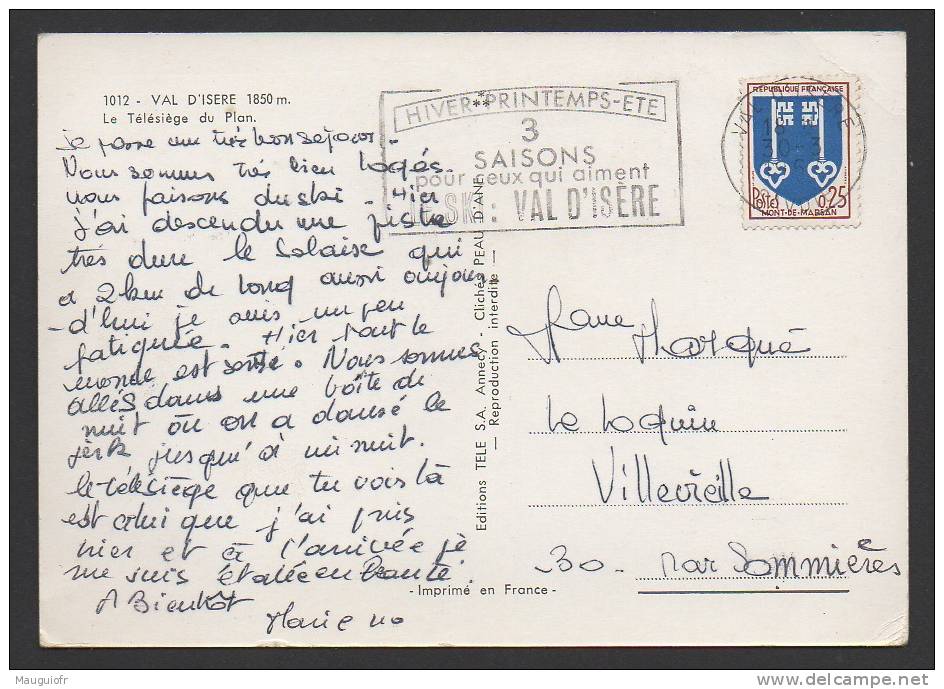 1012 - VAL D'ISERE 1850 m.
Le Télésiège du Plan.
je passe un très bon séjour.
Nous sommes très bien logés.
nous faisons du ski. Hier
j'ai descendu une piste
très dure le Solaise qui
a 2 km de long aussi aujour
-d'hui je suis un peu
fatiguée. Hier tout le
monde est sorti. Nous sommes
allés dans une boîte de
nuit où on a dansé le
jerk jusqu'à minuit.
le télésiège que tu vois là
est celui que j'ai pris
hier et à l'arrivée je
me suis étalée en beauté.
A Bientôt
Marie
HIVER-PRINTEMPS-ETE
3
SAISONS
pour ceux qui aiment
LE SKI: VAL D'ISÈRE
VAL D'ISERE
18
30-3
REPUBLIQUE FRANÇAISE
Postes 0,25
MONT-DE-MARSAN
Editions TELE S.A. Annecy - Clichés PEAU D'ANE
— Reproduction interdite —
Marqué
Le Coquin
Villevieille
30. par Sommières
- Imprimé en France -
Mauguiofr
www.delcampe.net